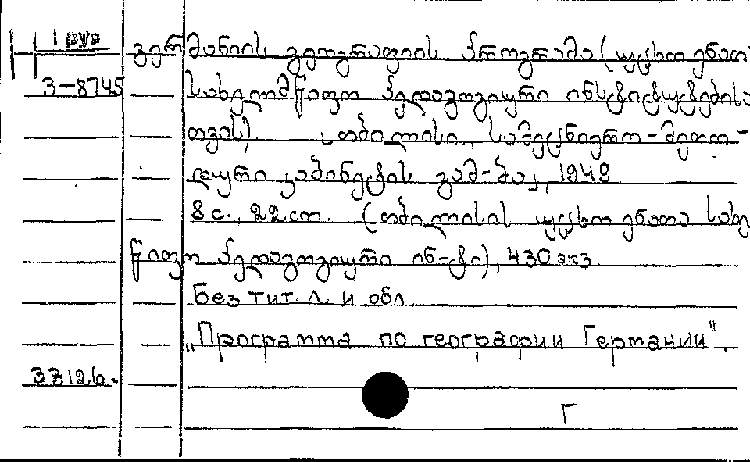 1 рур
გერმანიის გეოგრაფიის პროგრამა (უცხო ენათა
3-8745 სახელმწიფო პედაგოგიური ინსტიტუტებისა
თვის). თბილისი, სამეცნიერო-მეთო-
დური კაბინეტის გამ-ბა, 1948
8 с., 22 см. (თბილისის უცხო ენათა სახე
წიფო პედაგოგიური ინ-ტი), 430 экз.
Без тит. л. и обл.
„Программа по географии Германии".
Г